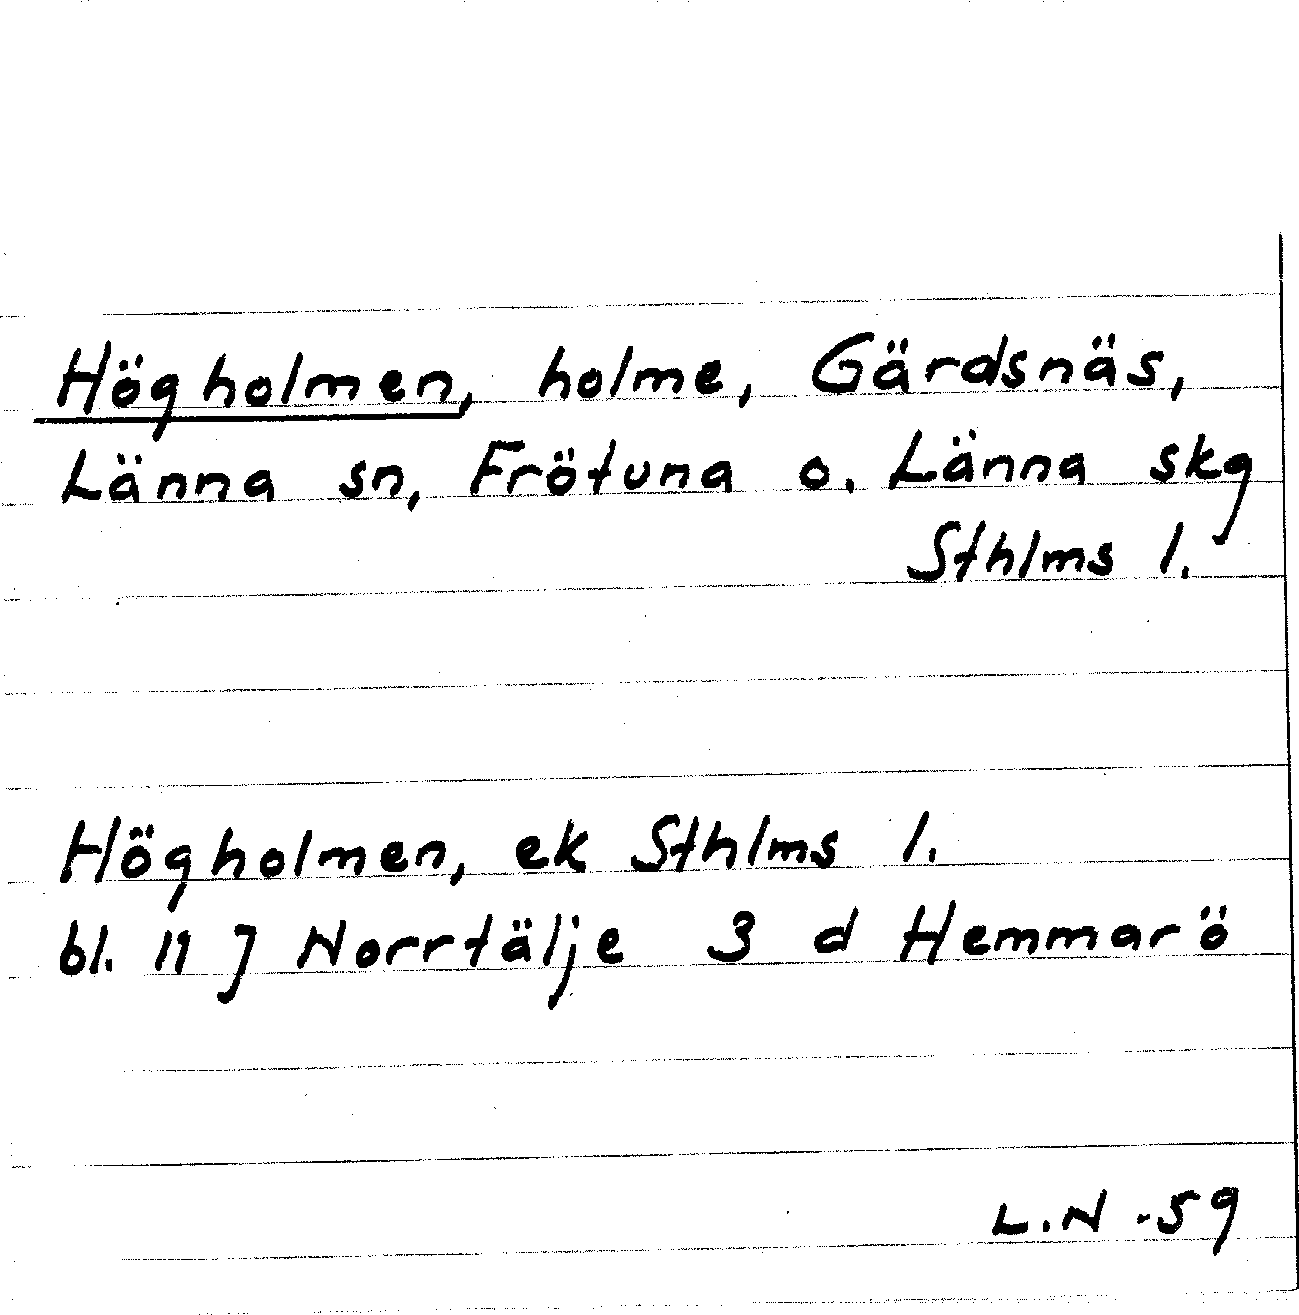 Högholmen, holme, Gärdsnäs,
Länna sn, Frötuna o. Länna skg
Sthlms l.
Högholmen, ek Sthlms l.
bl. 11 J Norrtälje 3 d Hemmarö
L.N -59